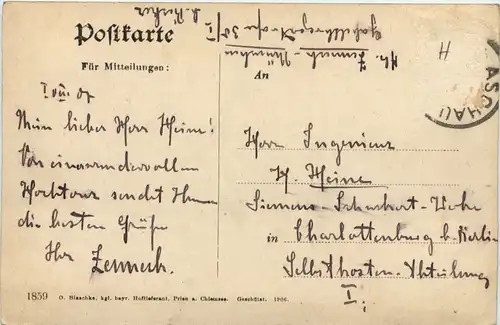 Postkarte
Für Mitteilungen:
An
Mein lieber Herr Heine!
Von einer wundervollen
Hochtour sendet Ihnen
die besten Grüße
Ihr Zenneck.
Herrn Ingenieur
H. Heine
Siemens-Schuckert-Werke
in Charlottenburg b. Berlin
Selbstkosten-Abteilung
I.
H
ASCHAU
Zenneck - München
1859 O. Blaschke, kgl. bayr. Hoflieferant, Prien a. Chiemsee. Geschützt. 1906.